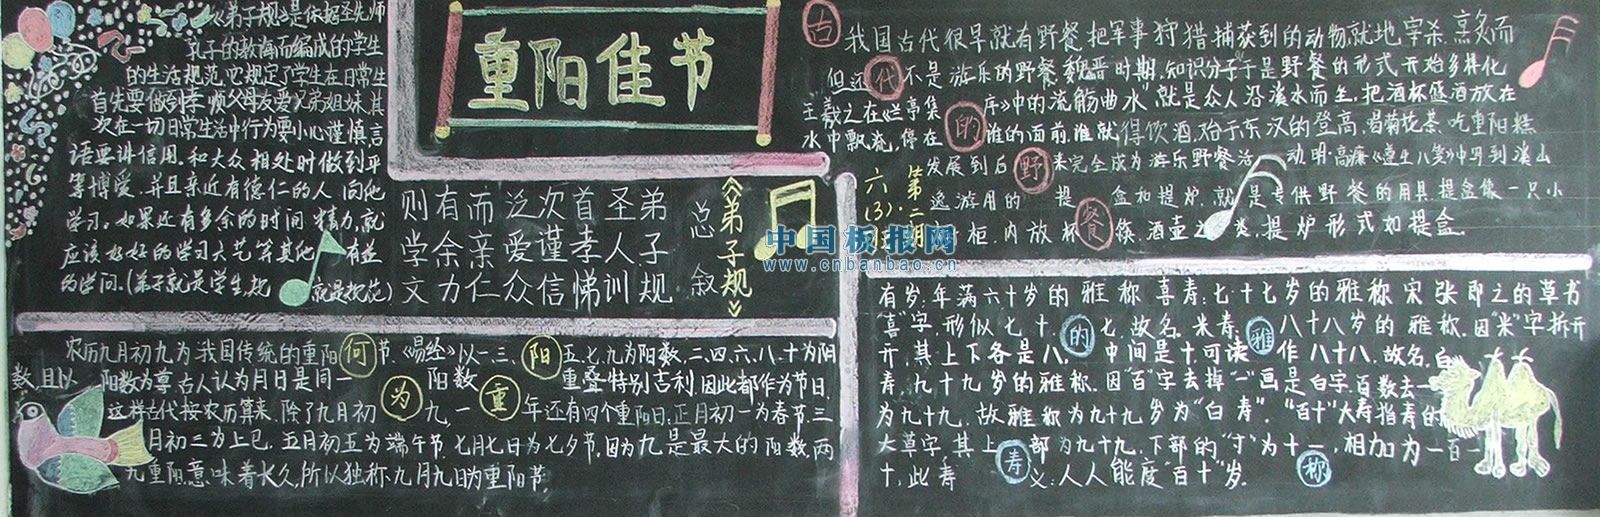 《弟子规》是依据圣先师
孔子的教诲而编成的学生
的生活规范,它规定了学生在日常生
首先要做到孝顺父母,友爱兄弟姐妹.其
次在一切日常生活中行为要小心谨慎言
语要讲信用.和大众相处时做到平
等博爱.并且亲近有德仁的人向他
学习.如果还有多余的时间精力,就
应该好好的学习六艺等其他有益
的学问.(弟子就是学生,规就是规范)
重阳佳节
则有而泛次首圣弟
学余亲爱谨孝人子
文力仁众信悌训规
《弟子规》
总叙
第二期
六(3)
中国板报网
www.cnbanbao.cn
古代的野餐
我国古代很早就有野餐,把军事狩猎捕获到的动物就地宰杀.烹炙而
但还不是游乐的野餐.魏晋时期,知识分子于是野餐的形式开始多样化
王羲之在《兰亭集序》中的"流觞曲水"就是众人沿溪水而坐,把酒杯盛酒放在
水中飘流,停在谁的面前,谁就得饮酒.始于东汉的登高.喝菊花茶.吃重阳糕
发展到后来完全成为游乐野餐活动.明·高濂《遵生八笺》中写到溪山
逸游用的提盒和提炉,就是专供野餐的用具.提盒像一只小
柜,内放杯筷.酒壶之类,提炉形式如提盒.
何为重阳
农历九月初九为我国传统的重阳节.《易经》以一.三、五.七.九为阳数,二.四.六.八.十为阴
数,且以阳数为尊.古人认为月日是同一阳数重叠,特别吉利,因此都作为节日.
这样古代按农历算来,除了九月初九,一年还有四个重阳日;正月初一为春节.三
月初三为上巳.五月初五为端午节.七月七日为七夕节.因为九是最大的阳数,两
九重阳,意味着长久,所以独称九月九日为重阳节.
寿的雅称
有岁:年满六十岁的雅称 喜寿:七十七岁的雅称 宋张即之的草书
"喜"字,形似七十七,故名.米寿:八十八岁的雅称.因"米"字拆开
开,其上下各是八,中间是十,可读作八十八,故名.白
寿:九十九岁的雅称.因"百"字去掉"一"画是白字,百数去一
为九十九,故雅称为九十九岁为"白寿"."百十"大寿指寿的
大草字,其上部为九十九,下部的"寸"为十一,相加为一百一
十,此寿义:人人能度"百十"岁.